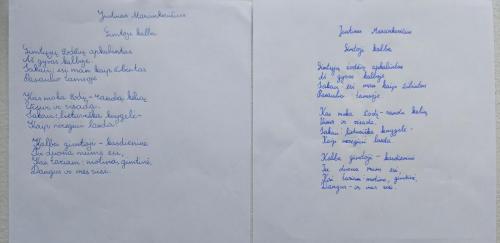 Justinas Marcinkevičius
Gimtoji kalba
Gimtųjų žodžių apkabintas
Aš gyvas kalboje.
Sakau: esi man kaip žibintas
Pasaulio tamsoje.
Kas moka žodį - randa kelią
Visur ir visada.
Sakau: lietuviška knygelė -
Kaip neregiui lazda.
Kalba gimtoji - kasdieninė
Tu duona mums esi,
Kai tariam - motina, gimtinė,
Dangus ir mes visi.
Justinas Marcinkevičius
Gimtoji kalba
Gimtųjų žodžių apkabintas
Aš gyvas kalboje
Sakau: esi man kaip žibintas
Pasaulio tamsoje.
Kas moka žodį - randa kelią
Visur ir visada.
Sakau: lietuviška knygelė -
Kaip neregiui lazda.
Kalba gimtoji - kasdieninė
Tu duona mums esi,
Kai tariam - motina, gimtinė,
Dangus - ir mes visi.